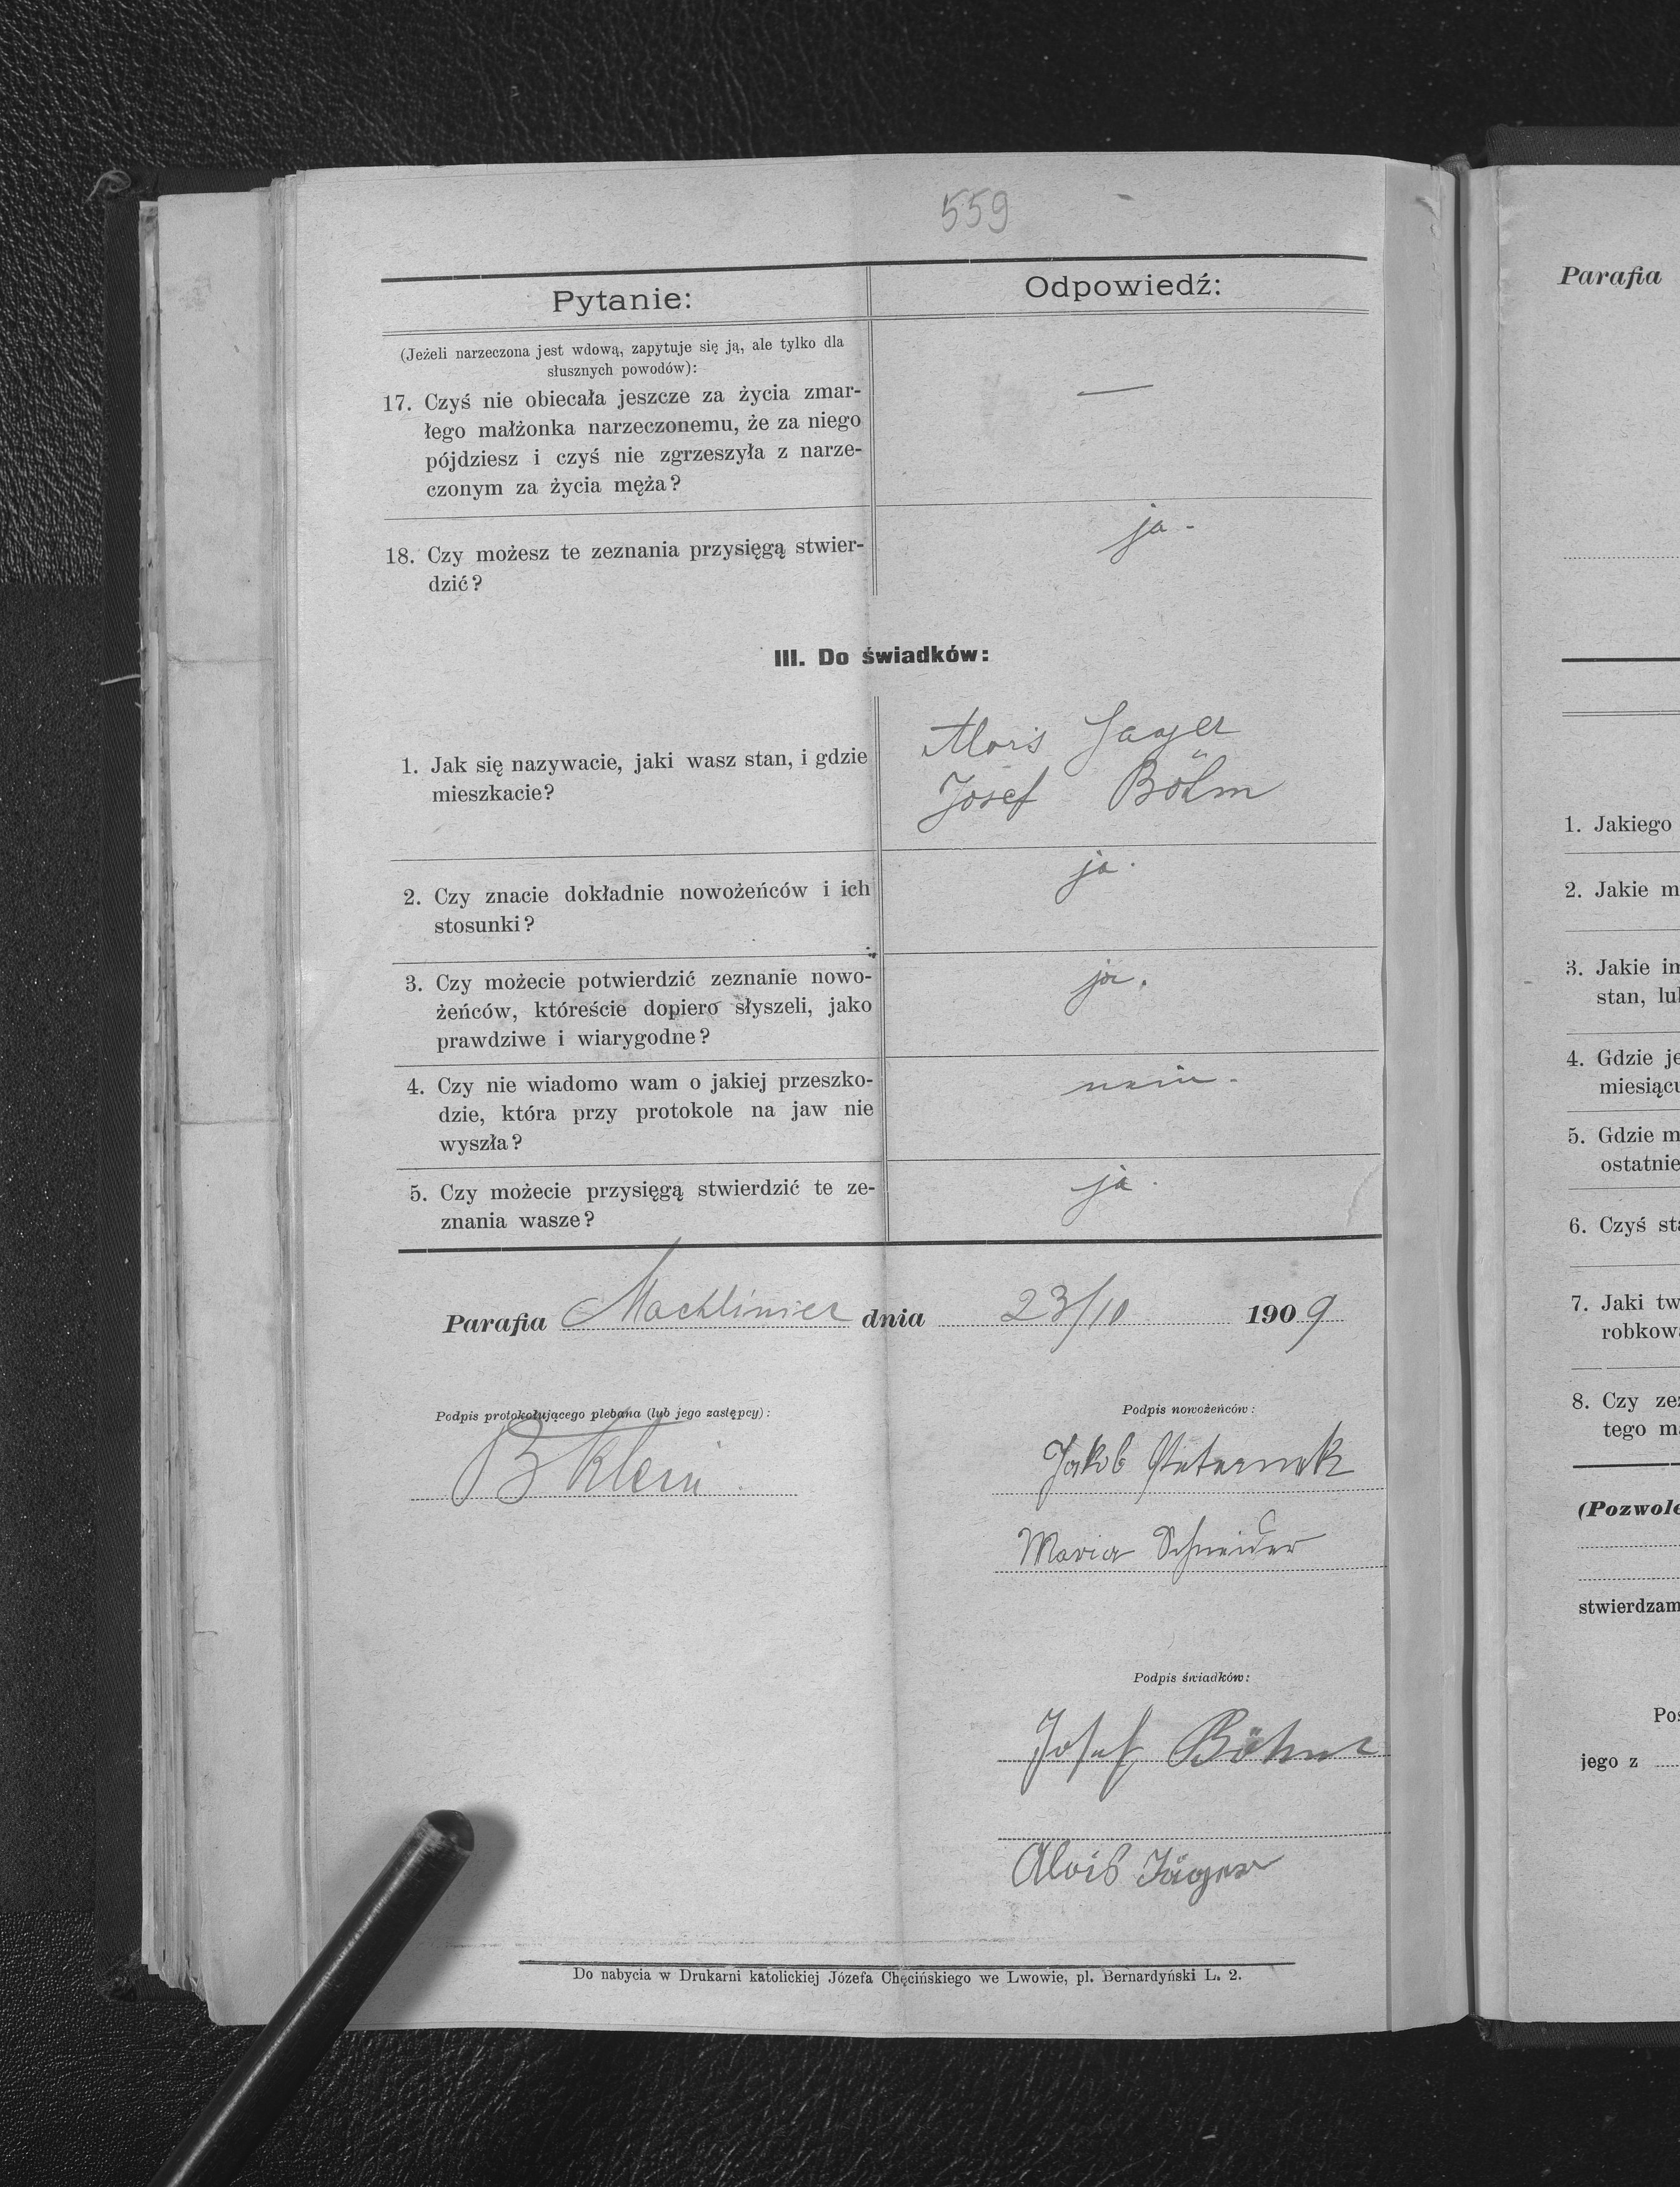 559
Pytanie:
Odpowiedź:
(Jeżeli narzeczona jest wdową, zapytuje się ją, ale tylko dla
słusznych powodów):
17. Czyś nie obiecała jeszcze za życia zmar-
łego małżonka narzeczonemu, że za niego
pójdziesz i czyś nie zgrzeszyła z narze-
czonym za życia męża?
—
18. Czy możesz te zeznania przysięgą stwier-
dzić?
ja -
III. Do świadków:
1. Jak się nazywacie, jaki wasz stan, i gdzie
mieszkacie?
Alois Jager
Josef Böhm
2. Czy znacie dokładnie nowożeńców i ich
stosunki?
ja.
3. Czy możecie potwierdzić zeznanie nowo-
żeńców, któreście dopiero słyszeli, jako
prawdziwe i wiarygodne?
ja.
4. Czy nie wiadomo wam o jakiej przeszko-
dzie, która przy protokole na jaw nie
wyszła?
nein -
5. Czy możecie przysięgą stwierdzić te ze-
znania wasze?
ja.
Parafia Machliniec dnia 23/10 1909
Podpis protokołującego plebana (lub jego zastępcy):
B Klein
Podpis nowożeńców:
Jakob
Maria Schneider
Podpis świadków:
Josef Böhm
Alois Jäger
Do nabycia w Drukarni katolickiej Józefa Chęcińskiego we Lwowie, pl. Bernardyński L. 2.
Parafia
1. Jakiego
2. Jakie m
3. Jakie im
stan, lub
4. Gdzie je
miesiącu
5. Gdzie m
ostatnie
6. Czyś sta
7. Jaki tw
robkowa
8. Czy zez
tego ma
(Pozwole
stwierdzam
Pos
jego z